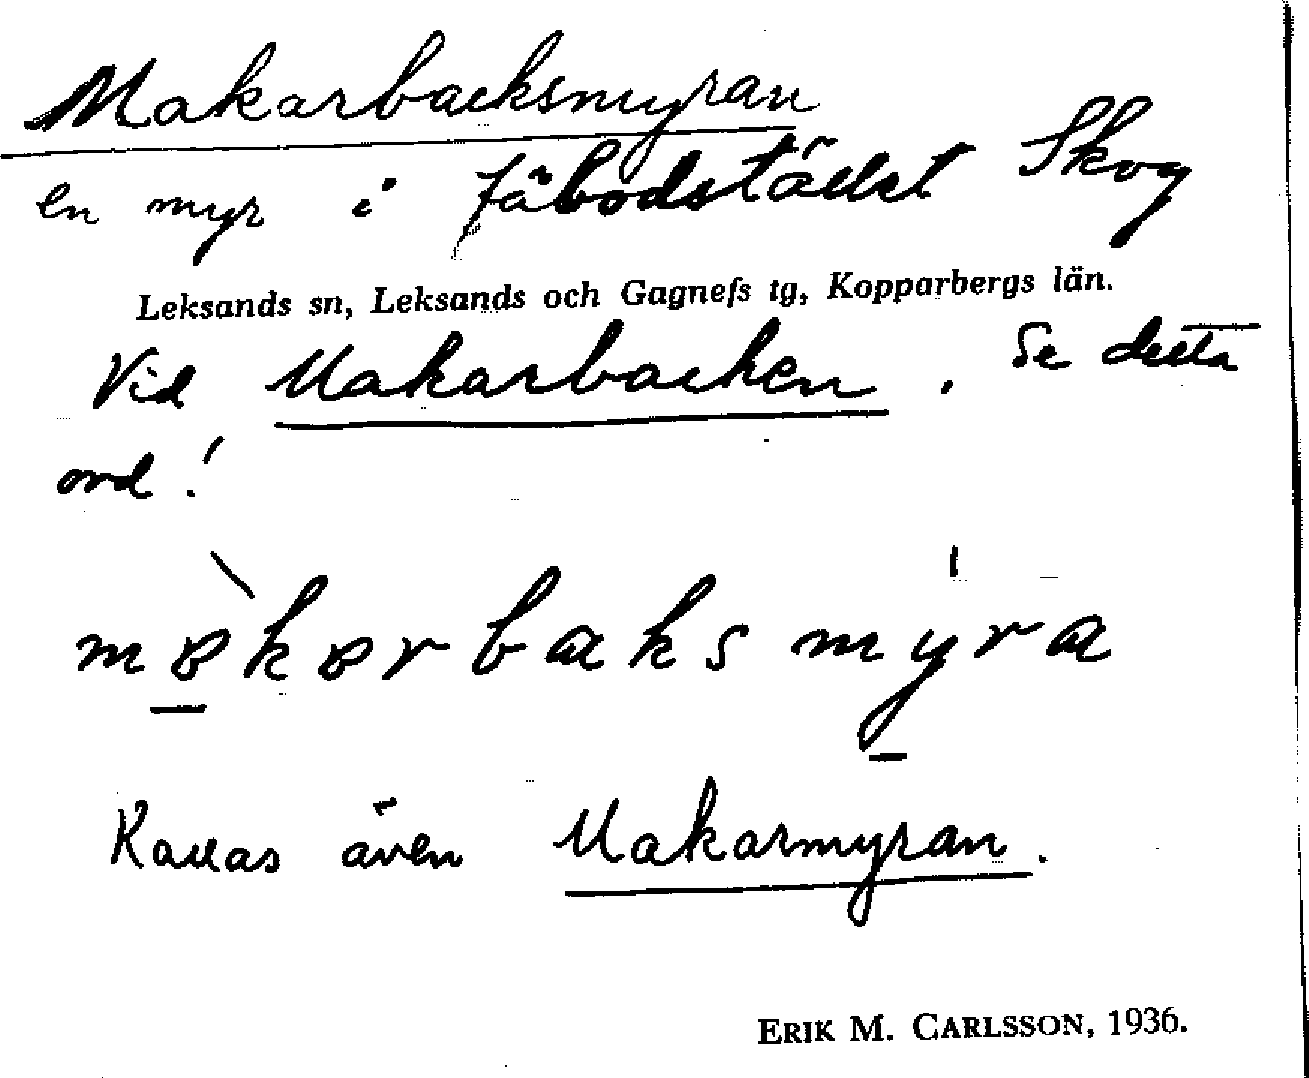 Makarbacksmyran
en myr i fäbodstället Skog
Leksands sn, Leksands och Gagnefs tg, Kopparbergs län.
Vid Makarbacken. Se detta
ord!
mɵ̀kɵrbaksmýra
Kallas även Makarmyran.
ERIK M. CARLSSON, 1936.